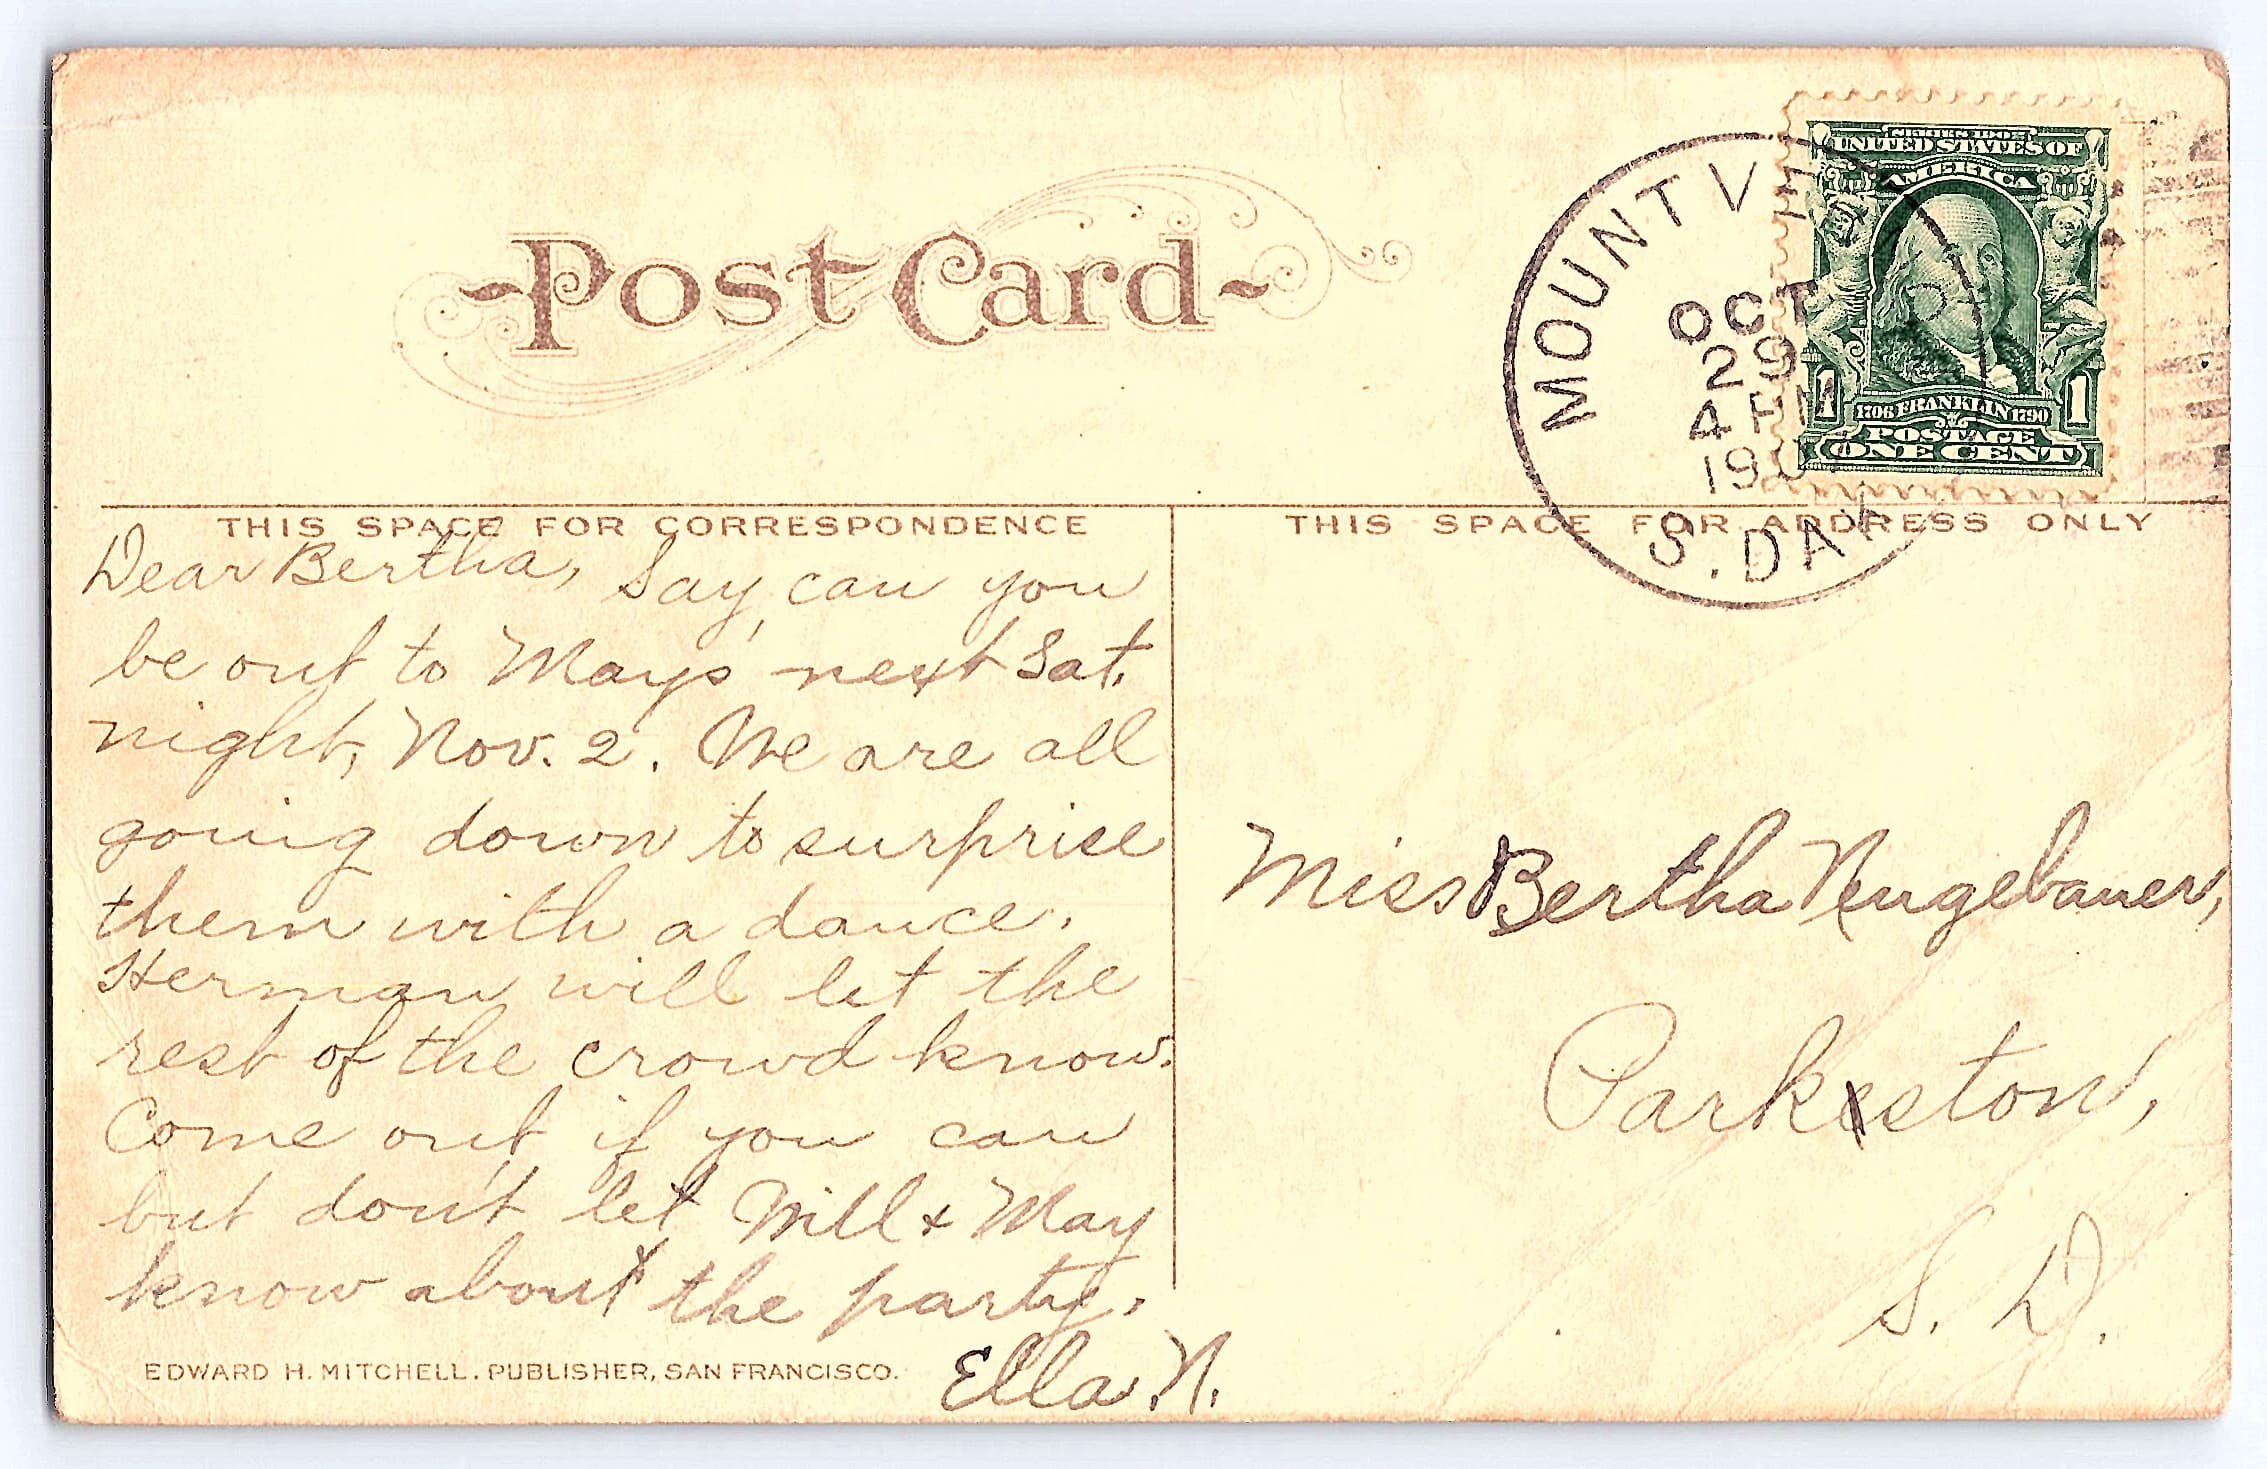 Post Card
SERIES 1902
UNITED STATES OF
AMERICA
1 1706 FRANKLIN 1790 1
POSTAGE
ONE CENT
MOUNT V
OCT
29
4 PM
19
S. DAK
THIS SPACE FOR CORRESPONDENCE
THIS SPACE FOR ADDRESS ONLY
Dear Bertha, Say, can you
be out to May's next Sat.
night, Nov. 2. We are all
going down to surprise
them with a dance.
Herman will let the
rest of the crowd know.
Come out if you can
but don't let Will & May
know about the party.
Ella. N.
Miss Bertha Neugebauer,
Parkston,
S. D.
EDWARD H. MITCHELL. PUBLISHER, SAN FRANCISCO.